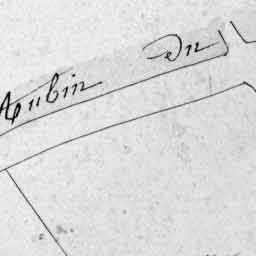 Aubin Du